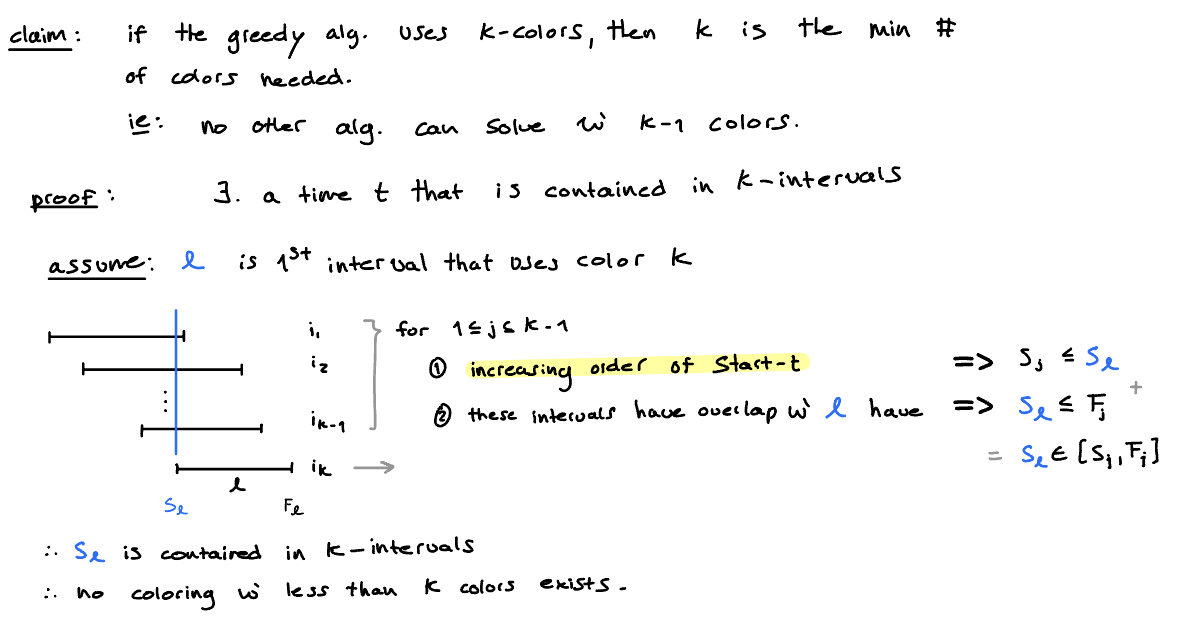 claim: if the greedy alg. uses k-colors, then k is the min #
of colors needed.
ie: no other alg. can solve w k-1 colors.
proof: ∃. a time t that is contained in k-intervals
assume: l is 1st interval that uses color k
i1 for 1≤j≤k-1
i2 ① increasing order of start-t => Sj ≤ Sl +
ik-1 ② these intervals have overlap w l have => Sl ≤ Fj
ik → = Sl ∈ [Sj, Fj]
l
Sl Fl
∴ Sl is contained in k-intervals
∴ no coloring w less than k colors exists.